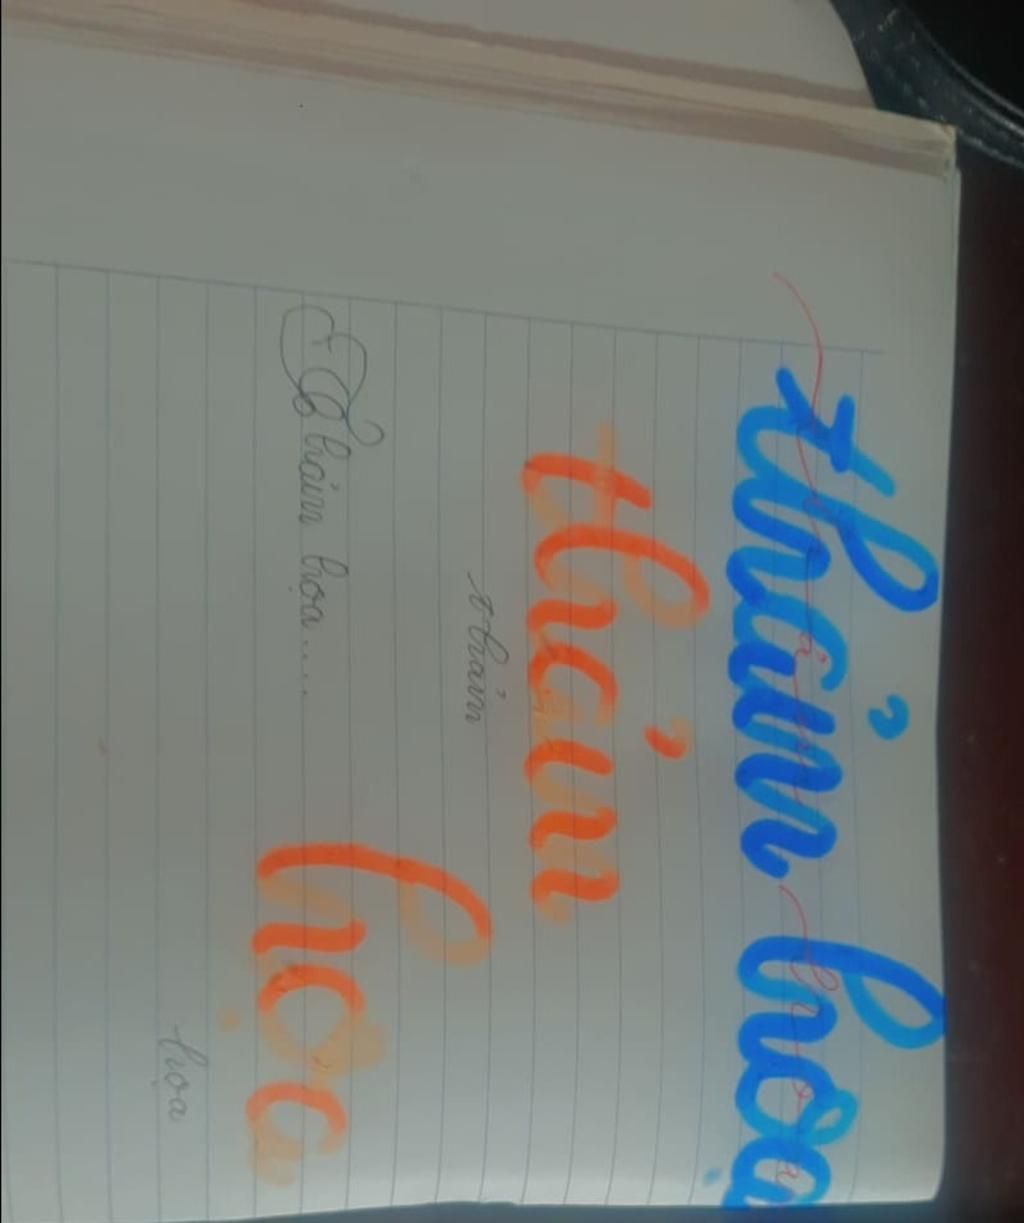 thảm họa
thảm
thảm
Thảm họa.... họa
họa